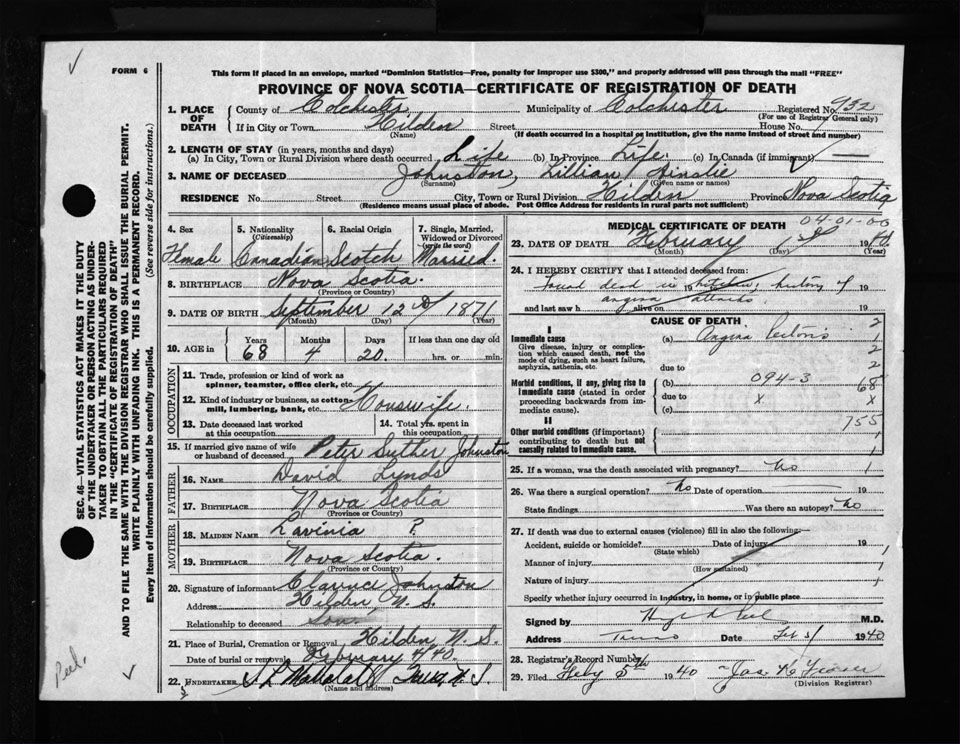 FORM 6
This form if placed in an envelope, marked "Dominion Statistics—Free, penalty for improper use $300," and properly addressed will pass through the mail "FREE"
PROVINCE OF NOVA SCOTIA—CERTIFICATE OF REGISTRATION OF DEATH
1. PLACE OF DEATH County of Colchester Municipality of Colchester Registered No. 932
(For use of Registrar General only)
If in City or Town Hilden Street House No.
(Name) (If death occurred in a hospital or institution, give the name instead of street and number)
2. LENGTH OF STAY (in years, months and days)
(a) In City, Town or Rural Division where death occurred Life (b) In Province Life (c) In Canada (if immigrant) —
3. NAME OF DECEASED Johnston, Lillian Ainslie
(Surname) (Given name or names)
RESIDENCE No. Street City, Town or Rural Division Hilden Province Nova Scotia
(Residence means usual place of abode. Post Office Address for residents in rural parts not sufficient)
4. Sex 5. Nationality 6. Racial Origin 7. Single, Married, Widowed or Divorced
(Citizenship) (write the word)
Female Canadian Scotch Married.
8. BIRTHPLACE Nova Scotia
(Province or Country)
9. DATE OF BIRTH September 12th 1871
(Month) (Day) (Year)
10. AGE in Years Months Days If less than one day old
68 4 20 hrs. or min.
OCCUPATION
11. Trade, profession or kind of work as spinner, teamster, office clerk, etc.
12. Kind of industry or business, as cotton-mill, lumbering, bank, etc. Houswife.
13. Date deceased last worked at this occupation
14. Total yrs. spent in this occupation
15. If married give name of wife or husband of deceased Peter Suther Johnston
FATHER
16. NAME David Lynds
17. BIRTHPLACE Nova Scotia
(Province or Country)
MOTHER
18. MAIDEN NAME Lavinia ?
19. BIRTHPLACE Nova Scotia.
(Province or Country)
20. Signature of informant Clarence Johnston
Address Hilden, N.S.
Relationship to deceased Son
21. Place of Burial, Cremation or Removal Hilden N.S.
Date of burial or removal February 4/40.
22. UNDERTAKER Truro, N.S.
(Name and address)
MEDICAL CERTIFICATE OF DEATH
04-01-00
23. DATE OF DEATH February 1st 1940.
(Month) (Day) (Year)
24. I HEREBY CERTIFY that I attended deceased from:
Found dead in kitchen, history of 19
angina attacks.
and last saw h alive on 19
CAUSE OF DEATH
I
Immediate cause
Give disease, injury or complication which caused death, not the mode of dying, such as heart failure, asphyxia, asthenia, etc.
(a) Angina Pectoris
due to
Morbid conditions, if any, giving rise to immediate cause (stated in order proceeding backwards from immediate cause).
(b) 094-3
due to x
(c)
II
Other morbid conditions (if important) contributing to death but not causally related to immediate cause.
2
1
2
2
68
x
755
1
1
25. If a woman, was the death associated with pregnancy? No 1
26. Was there a surgical operation? No Date of operation 19
State findings Was there an autopsy? No
27. If death was due to external causes (violence) fill in also the following:—
Accident, suicide or homicide? Date of injury 19
(State which)
Manner of injury
(How sustained)
Nature of injury
Specify whether injury occurred in industry, in home, or in public place
Signed by M.D.
Address Truro Date Feb 3/ 1940
28. Registrar's Record Number
29. Filed Feby 5th 1940
(Division Registrar)
SEC. 46—VITAL STATISTICS ACT MAKES IT THE DUTY
OF THE UNDERTAKER OR PERSON ACTING AS UNDER-
TAKER TO OBTAIN ALL THE PARTICULARS REQUIRED
IN THE "CERTIFICATE OF REGISTRATION OF DEATH"
AND TO FILE THE SAME WITH THE DIVISION REGISTRAR WHO SHALL ISSUE THE BURIAL PERMIT.
WRITE PLAINLY WITH UNFADING INK. THIS IS A PERMANENT RECORD.
Every item of information should be carefully supplied. (See reverse side for instructions.)
Peel.